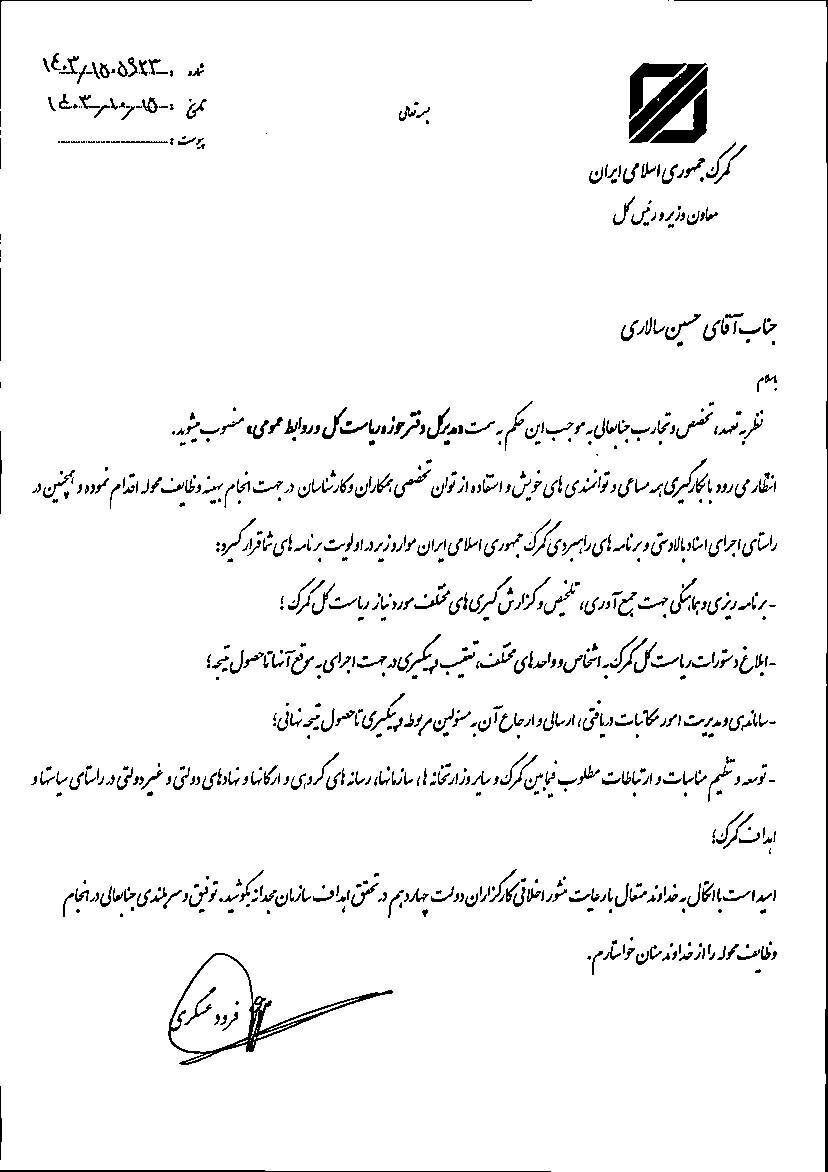 شماره : ۱۴۰۳/۱۵۰۵۹۲۳
تاریخ : ۱۴۰۳/۱۰/۱۵
پیوست :
بسمه تعالی
گمرک جمهوری اسلامی ایران
معاون وزیر و رئیس کل
جناب آقای حسین سالاری
باسلام
نظر به تعهد، تخصص و تجارب جنابعالی به موجب این حکم به سمت «مدیرکل دفتر حوزه ریاست کل و روابط عمومی» منصوب میشوید.
انتظار می رود با بکارگیری همه مساعی و توانمندی های خویش و استفاده از توان تخصصی همکاران و کارشناسان در جهت انجام بهینه وظایف محوله اقدام نموده و همچنین در
راستای اجرای اسناد بالادستی و برنامه های راهبردی گمرک جمهوری اسلامی ایران موارد زیر در اولویت برنامه های شما قرار گیرد:
- برنامه ریزی و هماهنگی جهت جمع آوری، تلخیص و گزارش گیری های مختلف مورد نیاز ریاست کل گمرک؛
- ابلاغ دستورات ریاست کل گمرک به اشخاص و واحدهای مختلف، تعقیب و پیگیری در جهت اجرای به موقع آنها تا حصول نتیجه؛
- ساماندهی و مدیریت امور مکاتبات دریافتی، ارسالی و ارجاع آن به مسئولین مربوطه و پیگیری تا حصول نتیجه نهائی؛
- توسعه و تنظیم مناسبات و ارتباطات مطلوب فیمابین گمرک و سایر وزارتخانه ها، سازمانها، رسانه های گروهی و ارگانها و نهادهای دولتی و غیردولتی در راستای سیاستها و
اهداف گمرک؛
امید است با اتکال به خداوند متعال با رعایت منشور اخلاقی کارگزاران دولت چهاردهم در تحقق اهداف سازمان مجدانه بکوشید. توفیق و سربلندی جنابعالی در انجام
وظایف محوله را از خداوند منان خواستارم.
فرود عسکری